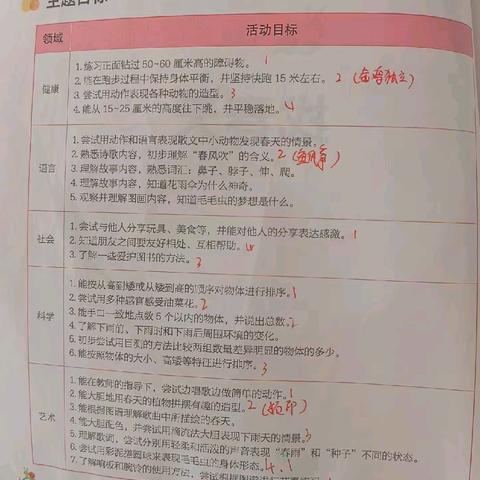 主题目标
领域 活动目标
健康
1. 练习正面钻过 50~60 厘米高的障碍物。 1
2. 能在跑步过程中保持身体平衡，并坚持快跑 15 米左右。 2（金鸡独立）
3. 尝试用动作表现各种动物的造型。 3
4. 能从 15~25 厘米的高度往下跳，并平稳落地。 4
语言
1. 尝试用动作和语言表现散文中小动物发现春天的情景。
2. 熟悉诗歌内容，初步理解“春风吹”的含义。 2
3. 理解故事内容，熟悉词汇：鼻子、脖子、伸、爬。
4. 理解故事内容，知道花雨伞为什么神奇。
5. 观察并理解图画内容，知道毛毛虫的梦想是什么。
社会
1. 尝试与他人分享玩具、美食等，并能对他人的分享表达感激。 1
2. 知道朋友之间要友好相处、互相帮助。
3. 了解一些爱护图书的方法。 3
科学
1. 能按从高到矮或从矮到高的顺序对物体进行排序。 1
2. 尝试用多种感官感受油菜花。 2
3. 能手口一致地点数 5 个以内的物体，并说出总数。 2
4. 了解下雨前、下雨时和下雨后周围环境的变化。
5. 初步尝试用目测的方法比较两组数量差异明显的物体的多少。
6. 能按照物体的大小、高矮等特征进行排序。 3
艺术
1. 能在教师的指导下，尝试边唱歌边做简单的动作。 1
2. 能大胆地用春天的植物拼摆有趣的造型。 2
3. 能根据图谱理解歌曲中所描绘的春天。
4. 能大胆配色，并尝试用滴流法大胆表现下雨天的情景。 3
5. 理解歌词，尝试分别用轻柔和活泼的声音表现“春雨”和“种子”不同的状态。
6. 尝试用彩泥搓圆球来表现毛毛虫的身体形态。 4.1
7. 了解响板和碗铃的使用方法，尝试根据图谱进行